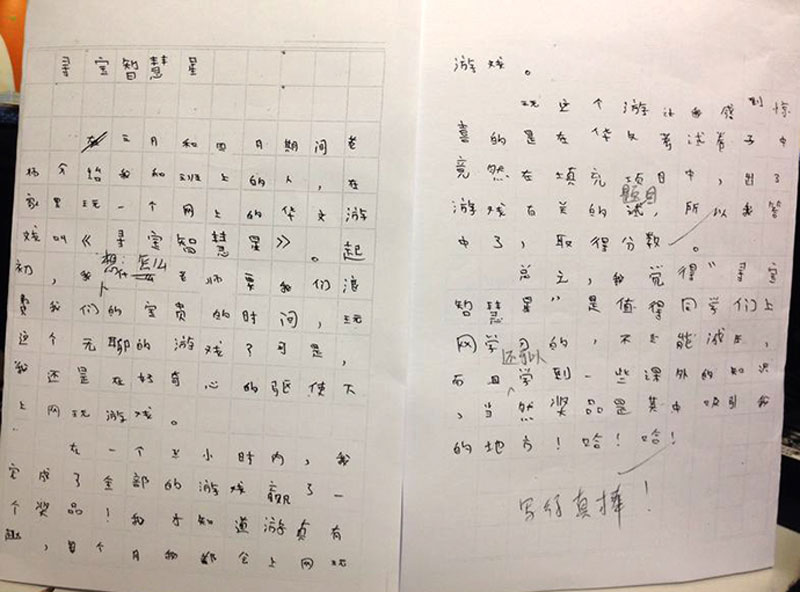 寻宝智慧星
在三月和四月期间老
师介绍我和班上的人，在
家里玩一个网上的华文游
戏叫《寻宝智慧星》。起
初，我想：怎么老师要我们浪
费我们的宝贵的时间，玩
这个无聊的游戏了可是，
我还是在好奇心的驱使下
上网玩游戏。
在一个小时内，我
完成了全部的游戏赢了一
个奖品！我才知道游真有
趣，每个月都会上网玩
游戏。
玩这个游让我感到惊
喜的是在华文考试卷子中
竟然在填充项目中，出了
游戏有关的试题目，所以我答
中了，取得分数。
总之，我觉得“寻宝
智慧星”是值得同学们上
网学习的，不能减压，
而且还可以学到一些课外的知识
，当然奖品是其中吸引我
的地方！哈！哈！
写得真棒！